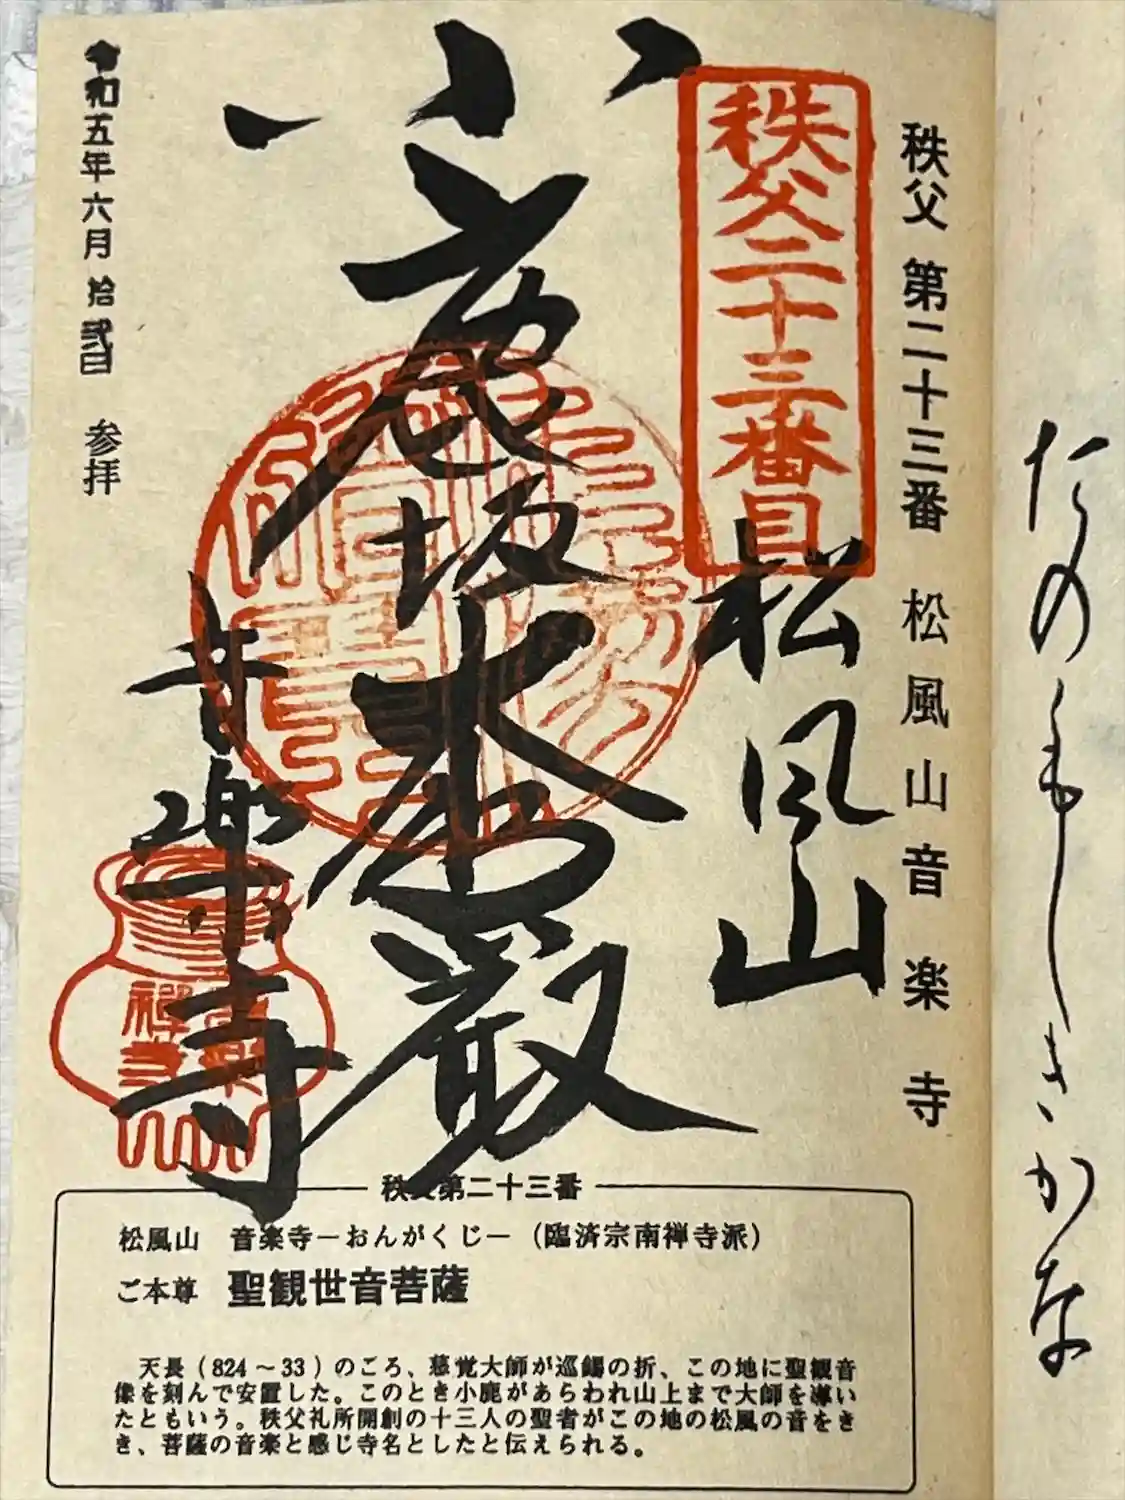 たのもしきかな
秩父 第二十三番 松風山音楽寺
秩父二十三番目
松風山
小鹿坂
音楽寺
令和五年六月拾弐日 参拝
秩父第二十三番
松風山 音楽寺−おんがくじ−(臨済宗南禅寺派)
ご本尊 聖観世音菩薩
天長(824〜33)のころ、慈覚大師が巡錫の折、この地に聖観音
像を刻んで安置した。このとき小鹿があらわれ山上まで大師を導い
たともいう。秩父礼所開創の十三人の聖者がこの地の松風の音をき
き、菩薩の音楽と感じ寺名としたと伝えられる。